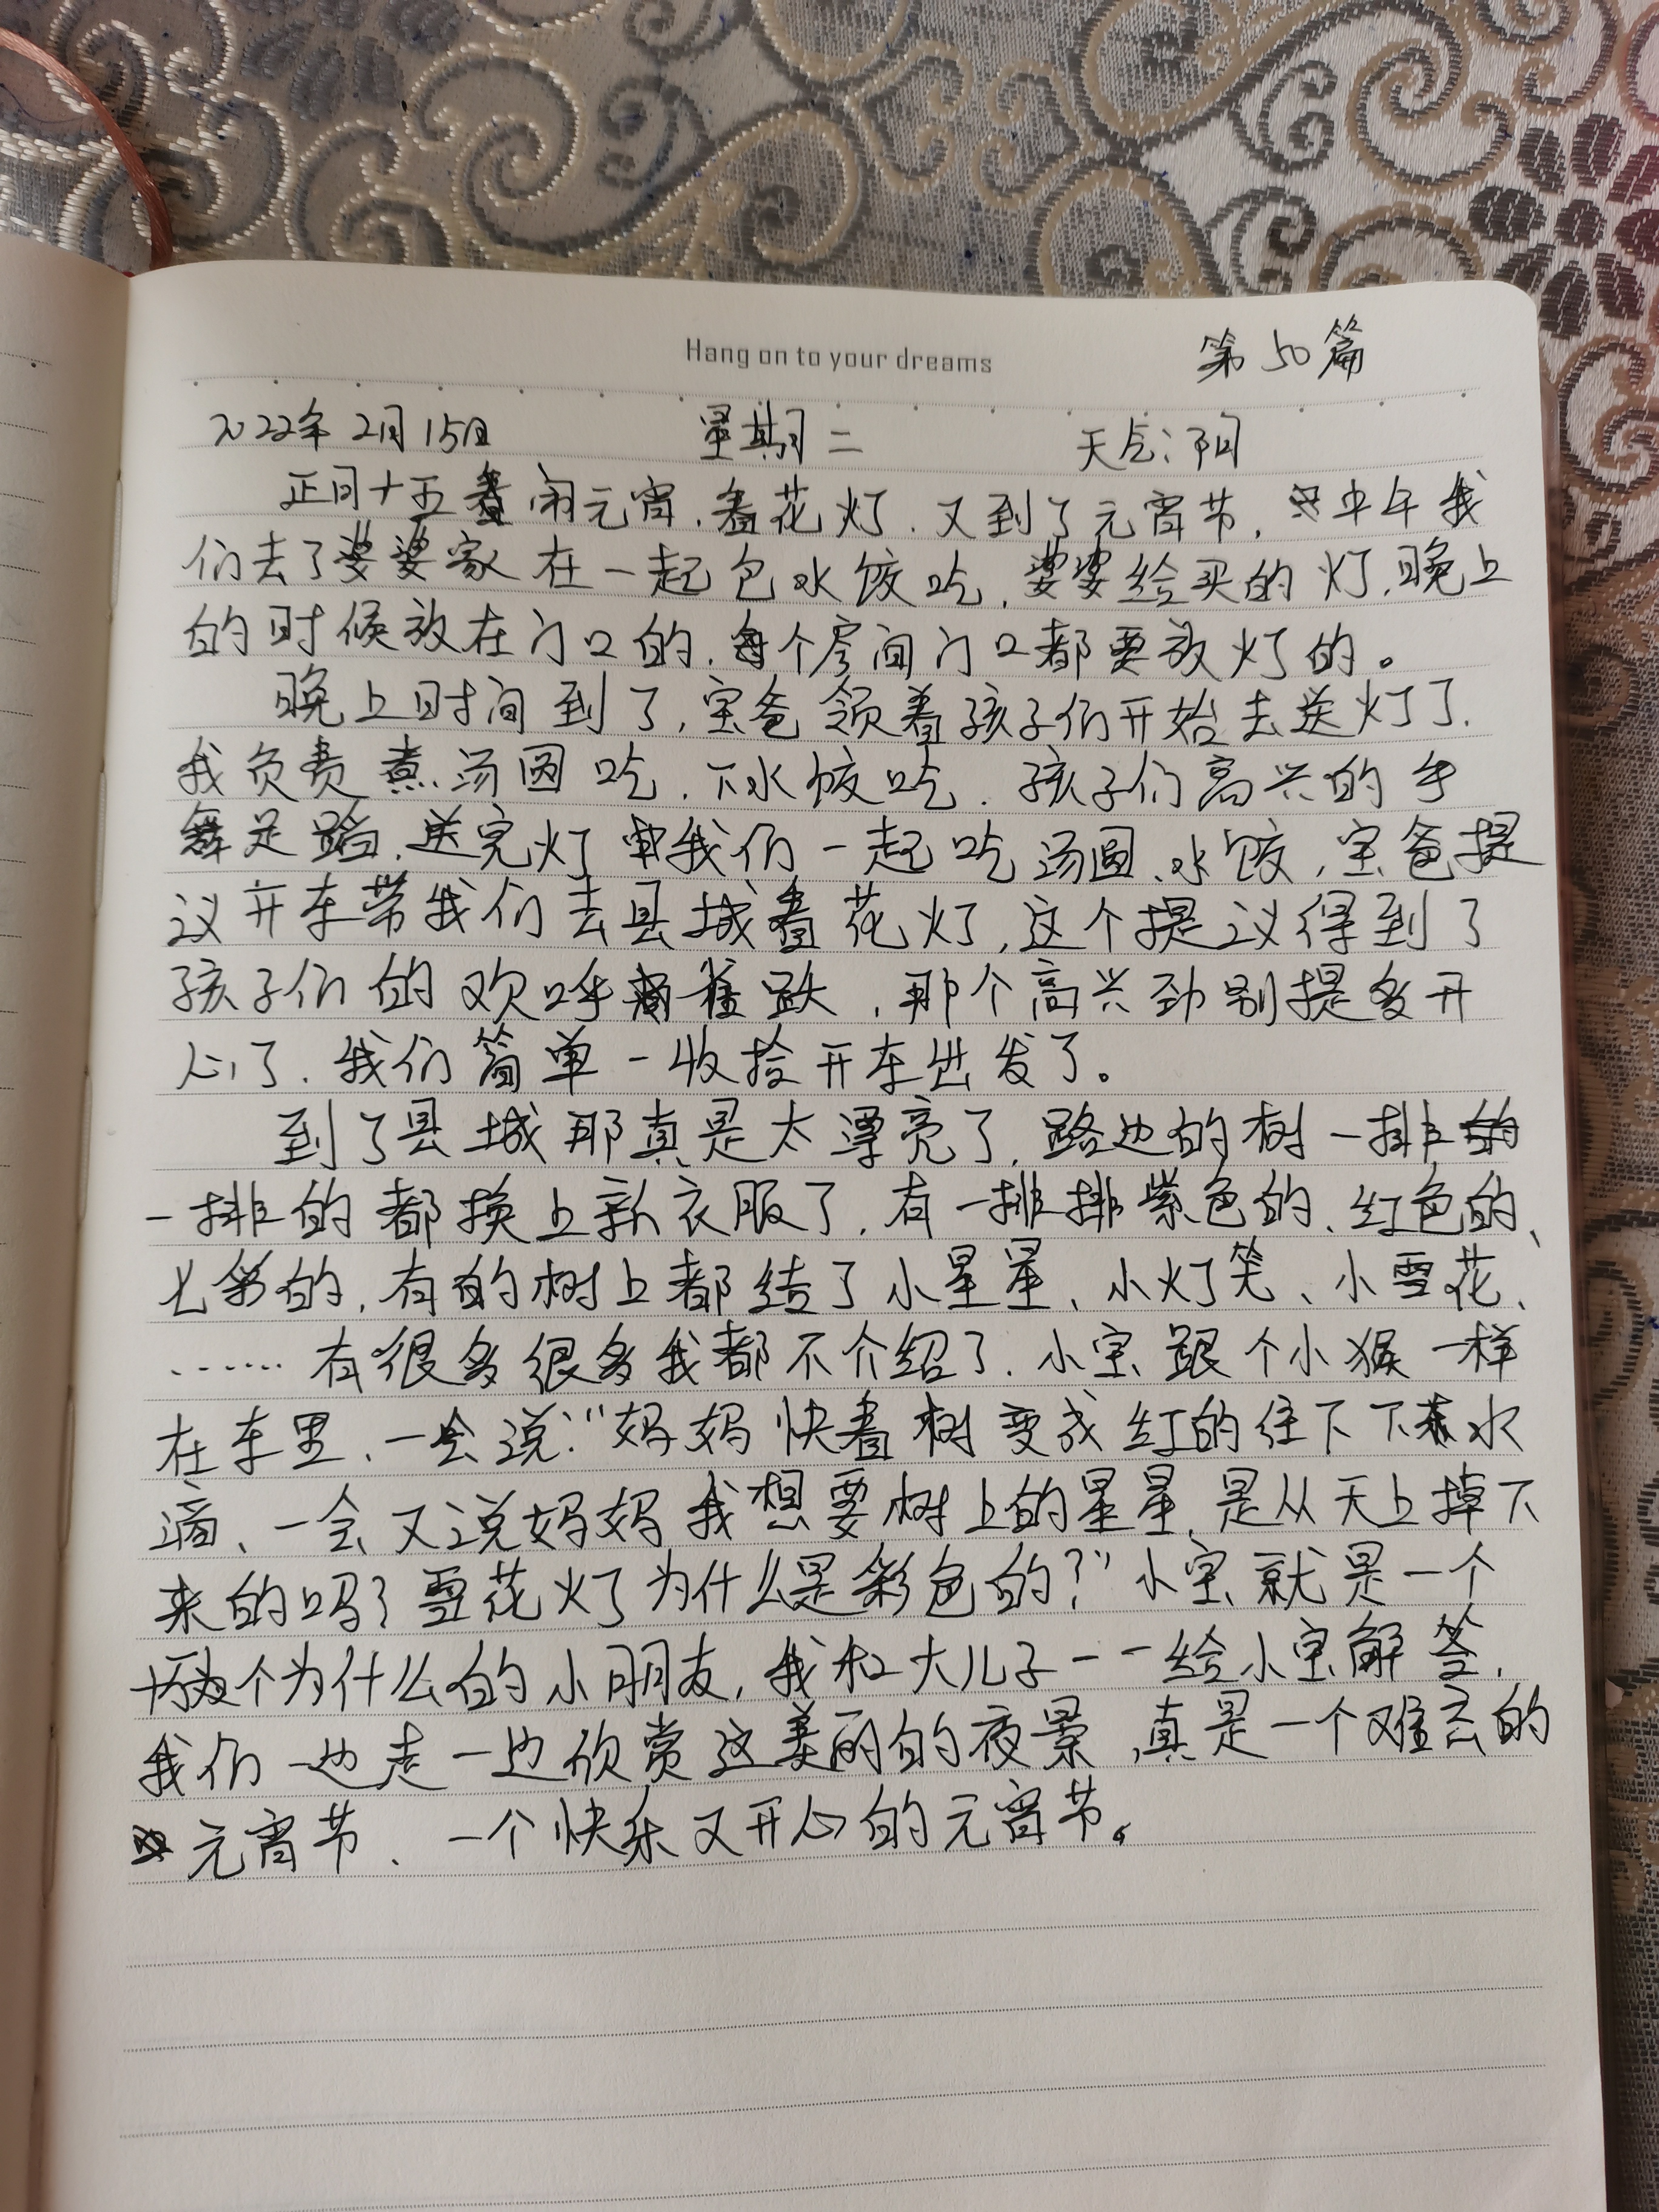 Hang on to your dreams
第50篇
2022年2月15日 星期二 天气:阴
正月十五闹元宵,看花灯,又到了元宵节,中午我
们去了婆婆家在一起包水饺吃,婆婆给买的灯,晚上
的时候放在门口的,每个房间门口都要放灯的。
晚上时间到了,宝爸领着孩子们开始去送灯了,
我负责煮汤圆吃,下水饺吃,孩子们高兴的手
舞足蹈,送完灯我们一起吃汤圆、水饺,宝爸提
议开车带我们去县城看花灯,这个提议得到了
孩子们的欢呼雀跃,那个高兴劲别提多开
心了,我们简单一收拾开车出发了。
到了县城那真是太漂亮了,路边的树一排
一排的都换上新衣服了,有一排排紫色的、红色的、
七彩的,有的树上都结了小星星、小灯笼、小雪花、
……有很多很多我都不介绍了,小宝跟个小猴一样
在车里、一会说:“妈妈快看树变成红的往下下水
滴、一会又说妈妈我想要树上的星星,是从天上掉下
来的吗?雪花灯为什么是彩色的?”小宝就是一个
十万个为什么的小朋友,我和大儿子一一给小宝解答,
我们一边走一边欣赏这美丽的夜景,真是一个难忘的
元宵节、一个快乐又开心的元宵节。